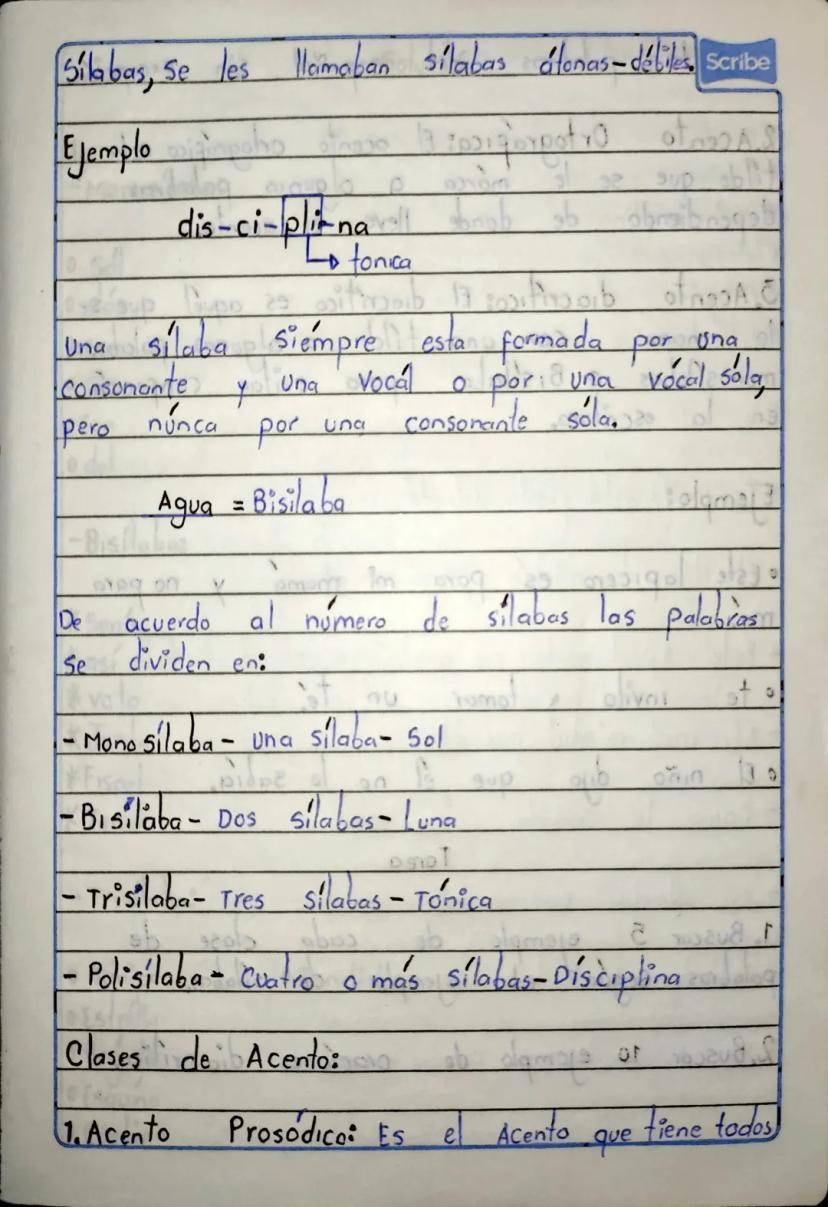 Sílabas, se les llamaban sílabas átonas-débiles.
Scribe
Ejemplo
dis-ci-pli-na
tonica
Una sílaba siémpre esta formada por una
consonante y una vocál o por una vócal sóla,
pero núnca por una consonante sóla.
Agua = Bisilaba
De acuerdo al número de sílabas las palabras
se dividen en:
- Mono sílaba - una sílaba - Sol
- Bisílaba - Dos sílabas - Luna
- Trisílaba - Tres sílabas - Tónica
- Polisílaba - Cuatro o más sílabas - Dísciplina
Clases de Acento:
1. Acento Prosódico: Es el Acento que tiene todos